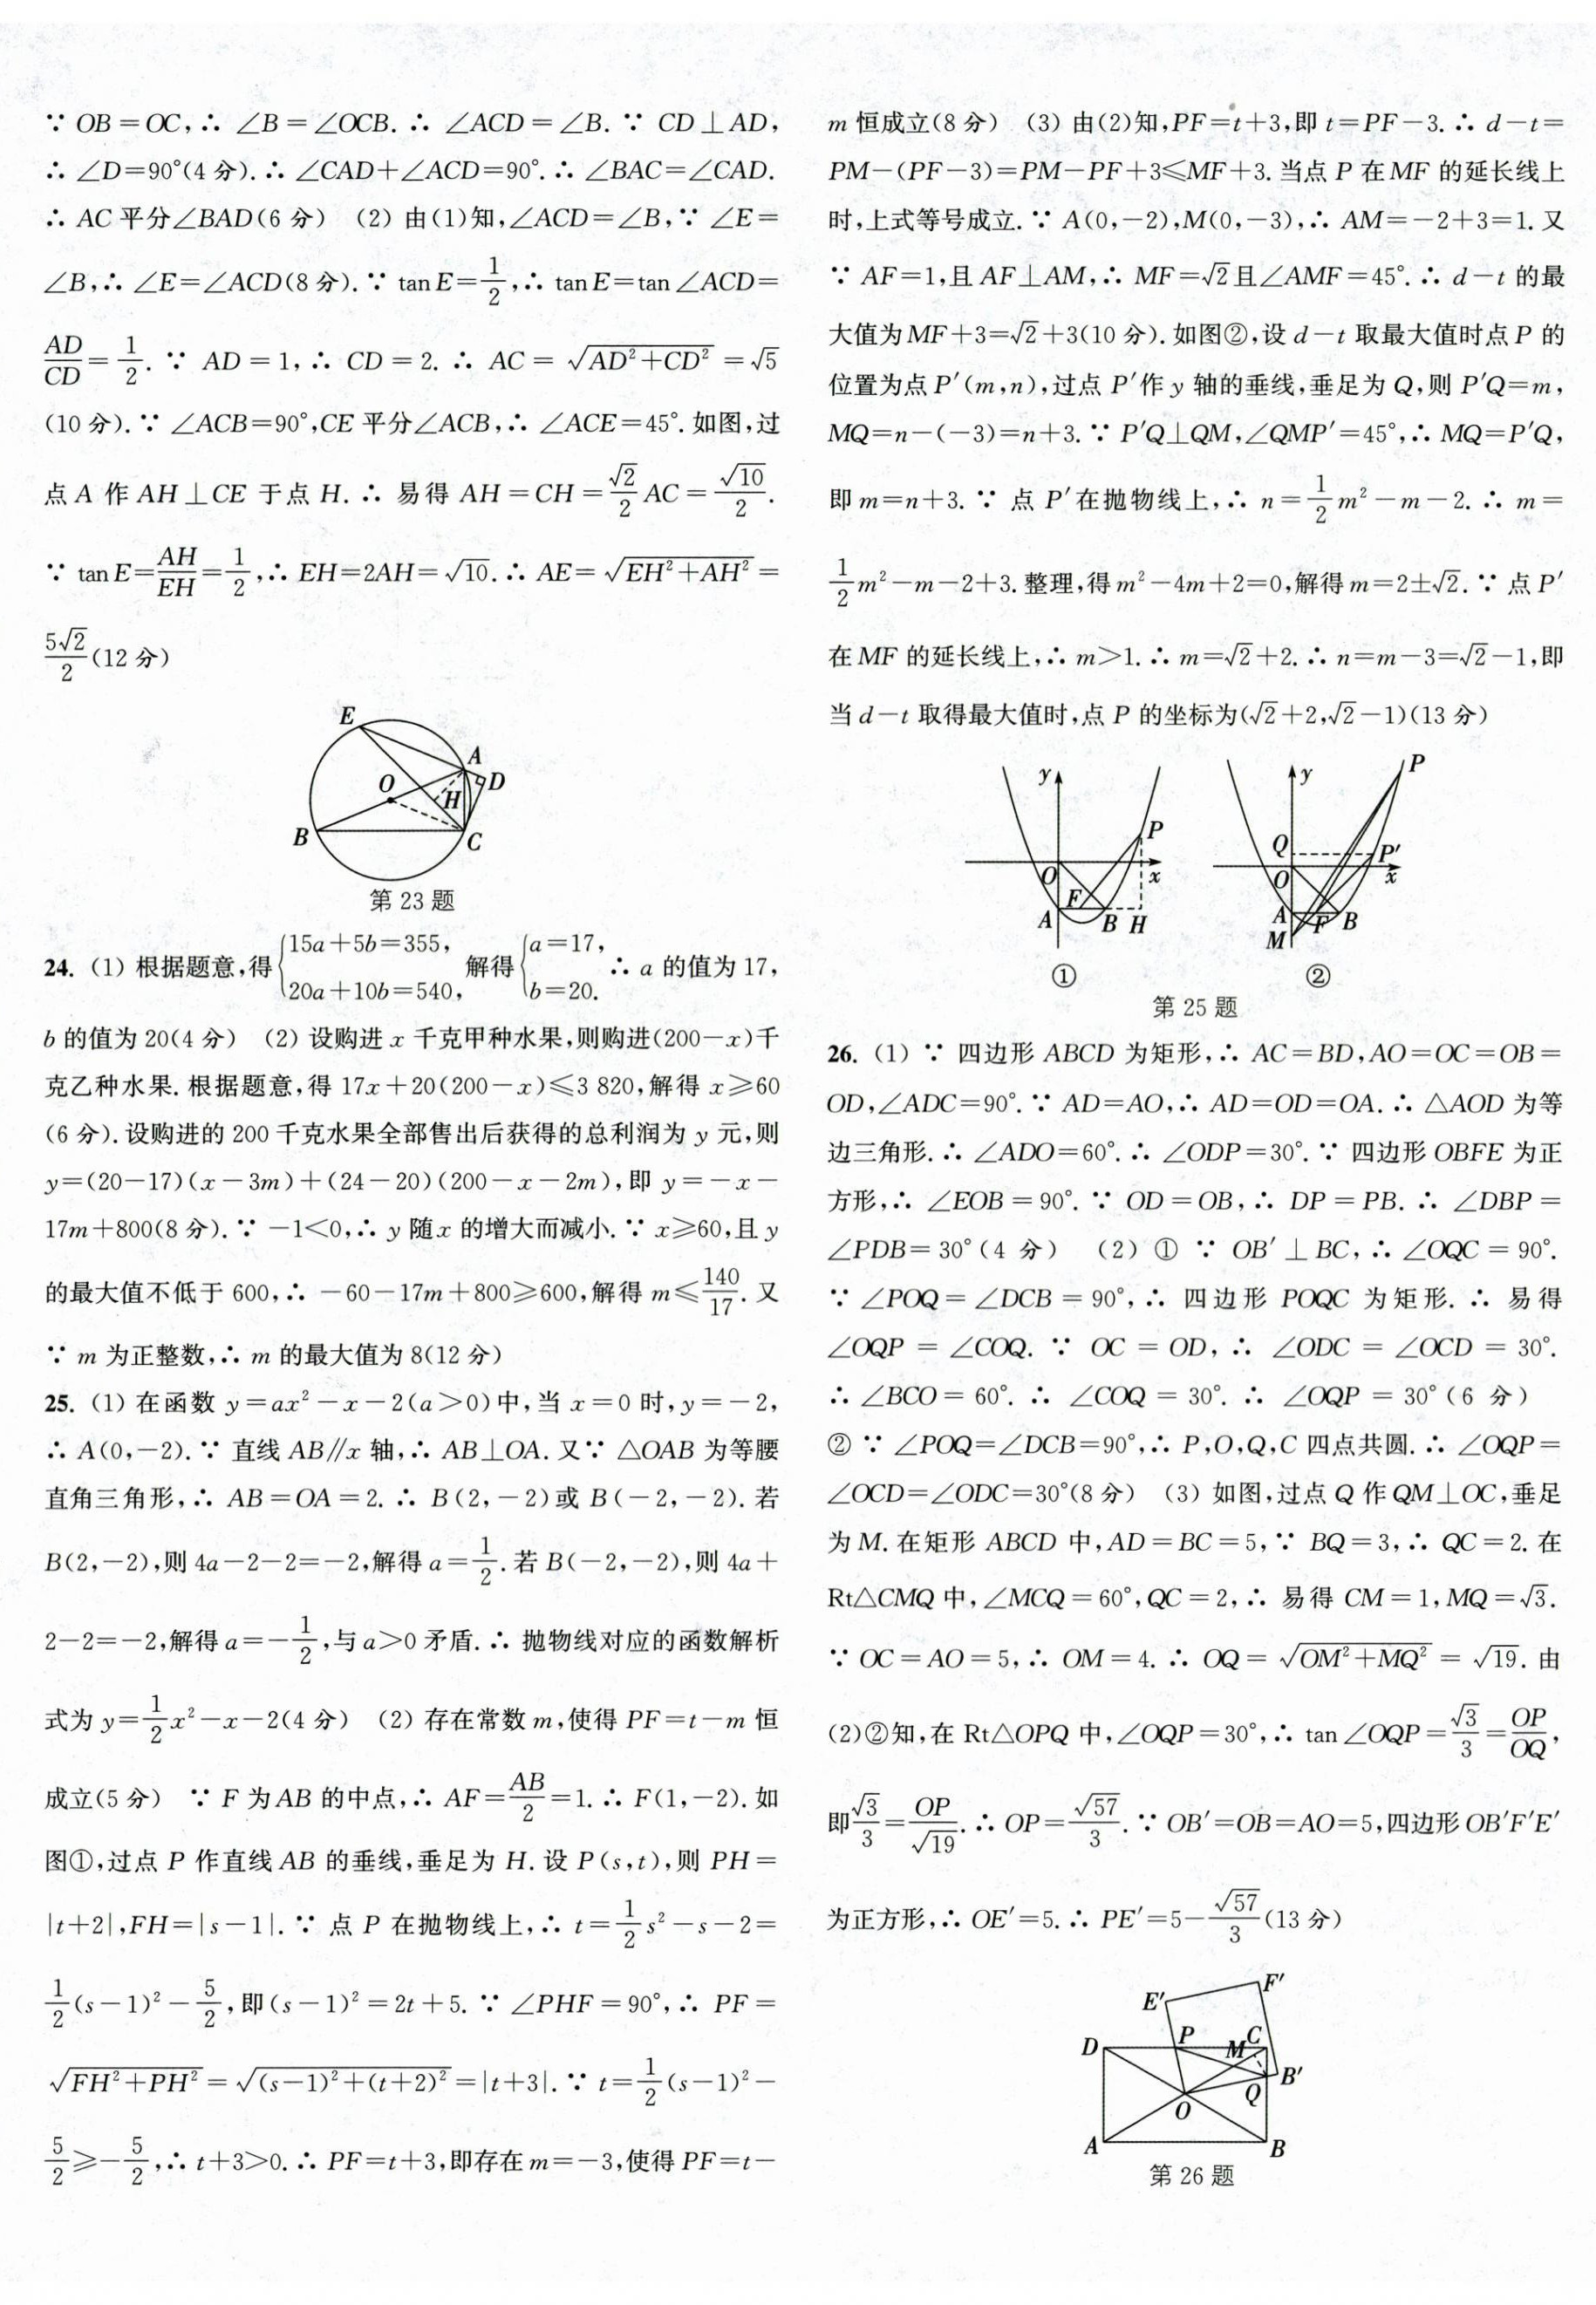 ∵ OB=OC,∴ ∠B=∠OCB. ∴ ∠ACD=∠B. ∵ CD⊥AD,
∴ ∠D=90°(4 分). ∴ ∠CAD+∠ACD=90°. ∴ ∠BAC=∠CAD.
∴ AC 平分∠BAD(6 分) (2) 由(1)知,∠ACD=∠B,∵ ∠E=
∠B,∴ ∠E=∠ACD(8 分). ∵ tan E=1/2,∴ tan E=tan ∠ACD=
AD/CD=1/2. ∵ AD=1,∴ CD=2. ∴ AC=√(AD²+CD²)=√5
(10 分). ∵ ∠ACB=90°,CE 平分∠ACB,∴ ∠ACE=45°. 如图,过
点 A 作 AH⊥CE 于点 H. ∴ 易得 AH=CH=√2/2 AC=√10/2.
∵ tan E=AH/EH=1/2,∴ EH=2AH=√10. ∴ AE=√(EH²+AH²)=
5√2/2(12 分)
E
A
O
D
H
B
C
第 23 题
24. (1) 根据题意,得{15a+5b=355, 20a+10b=540, 解得{a=17, b=20. ∴ a 的值为 17,
b 的值为 20(4 分) (2) 设购进 x 千克甲种水果,则购进(200-x)千
克乙种水果. 根据题意,得 17x+20(200-x)≤3 820,解得 x≥60
(6 分). 设购进的 200 千克水果全部售出后获得的总利润为 y 元,则
y=(20-17)(x-3m)+(24-20)(200-x-2m),即 y=-x-
17m+800(8 分). ∵ -1<0,∴ y 随 x 的增大而减小. ∵ x≥60,且 y
的最大值不低于 600,∴ -60-17m+800≥600,解得 m≤140/17. 又
∵ m 为正整数,∴ m 的最大值为 8(12 分)
25. (1) 在函数 y=ax²-x-2(a>0)中,当 x=0 时,y=-2,
∴ A(0,-2). ∵ 直线 AB∥x 轴,∴ AB⊥OA. 又∵ △OAB 为等腰
直角三角形,∴ AB=OA=2. ∴ B(2,-2)或 B(-2,-2). 若
B(2,-2),则 4a-2-2=-2,解得 a=1/2. 若 B(-2,-2),则 4a+
2-2=-2,解得 a=-1/2,与 a>0 矛盾. ∴ 抛物线对应的函数解析
式为 y=1/2x²-x-2(4 分) (2) 存在常数 m,使得 PF=t-m 恒
成立(5 分) ∵ F 为 AB 的中点,∴ AF=AB/2=1. ∴ F(1,-2). 如
图①,过点 P 作直线 AB 的垂线,垂足为 H. 设 P(s,t),则 PH=
|t+2|,FH=|s-1|. ∵ 点 P 在抛物线上,∴ t=1/2s²-s-2=
1/2(s-1)²-5/2,即(s-1)²=2t+5. ∵ ∠PHF=90°,∴ PF=
√(FH²+PH²)=√((s-1)²+(t+2)²)=|t+3|. ∵ t=1/2(s-1)²-
5/2≥-5/2,∴ t+3>0. ∴ PF=t+3,即存在 m=-3,使得 PF=t-
m 恒成立(8 分) (3) 由(2)知,PF=t+3,即 t=PF-3. ∴ d-t=
PM-(PF-3)=PM-PF+3≤MF+3. 当点 P 在 MF 的延长线上
时,上式等号成立. ∵ A(0,-2),M(0,-3),∴ AM=-2+3=1. 又
∵ AF=1,且 AF⊥AM,∴ MF=√2且∠AMF=45°. ∴ d-t 的最
大值为 MF+3=√2+3(10 分). 如图②,设 d-t 取最大值时点 P 的
位置为点 P′(m,n),过点 P′作 y 轴的垂线,垂足为 Q,则 P′Q=m,
MQ=n-(-3)=n+3. ∵ P′Q⊥QM,∠QMP′=45°,∴ MQ=P′Q,
即 m=n+3. ∵ 点 P′在抛物线上,∴ n=1/2m²-m-2. ∴ m=
1/2m²-m-2+3. 整理,得 m²-4m+2=0,解得 m=2±√2. ∵ 点 P′
在 MF 的延长线上,∴ m>1. ∴ m=√2+2. ∴ n=m-3=√2-1,即
当 d-t 取得最大值时,点 P 的坐标为(√2+2,√2-1)(13 分)
y
P
O
x
F
A
B H
①
P
y
Q
P′
O
x
A
F
B
M
②
第 25 题
26. (1) ∵ 四边形 ABCD 为矩形,∴ AC=BD,AO=OC=OB=
OD,∠ADC=90°. ∵ AD=AO,∴ AD=OD=OA. ∴ △AOD 为等
边三角形. ∴ ∠ADO=60°. ∴ ∠ODP=30°. ∵ 四边形 OBFE 为正
方形,∴ ∠EOB=90°. ∵ OD=OB,∴ DP=PB. ∴ ∠DBP=
∠PDB=30°(4 分) (2) ① ∵ OB′⊥BC,∴ ∠OQC=90°.
∵ ∠POQ=∠DCB=90°,∴ 四边形 POQC 为矩形. ∴ 易得
∠OQP=∠COQ. ∵ OC=OD,∴ ∠ODC=∠OCD=30°.
∴ ∠BCO=60°. ∴ ∠COQ=30°. ∴ ∠OQP=30°(6 分)
② ∵ ∠POQ=∠DCB=90°,∴ P,O,Q,C 四点共圆. ∴ ∠OQP=
∠OCD=∠ODC=30°(8 分) (3) 如图,过点 Q 作 QM⊥OC,垂足
为 M. 在矩形 ABCD 中,AD=BC=5,∵ BQ=3,∴ QC=2. 在
Rt△CMQ 中,∠MCQ=60°,QC=2,∴ 易得 CM=1,MQ=√3.
∵ OC=AO=5,∴ OM=4. ∴ OQ=√(OM²+MQ²)=√19. 由
(2)②知,在 Rt△OPQ 中,∠OQP=30°,∴ tan ∠OQP=√3/3=OP/OQ,
即√3/3=OP/√19. ∴ OP=√57/3. ∵ OB′=OB=AO=5,四边形 OB′F′E′
为正方形,∴ OE′=5. ∴ PE′=5-√57/3(13 分)
F′
E′
D
P
M
C
B′
Q
O
A
B
第 26 题